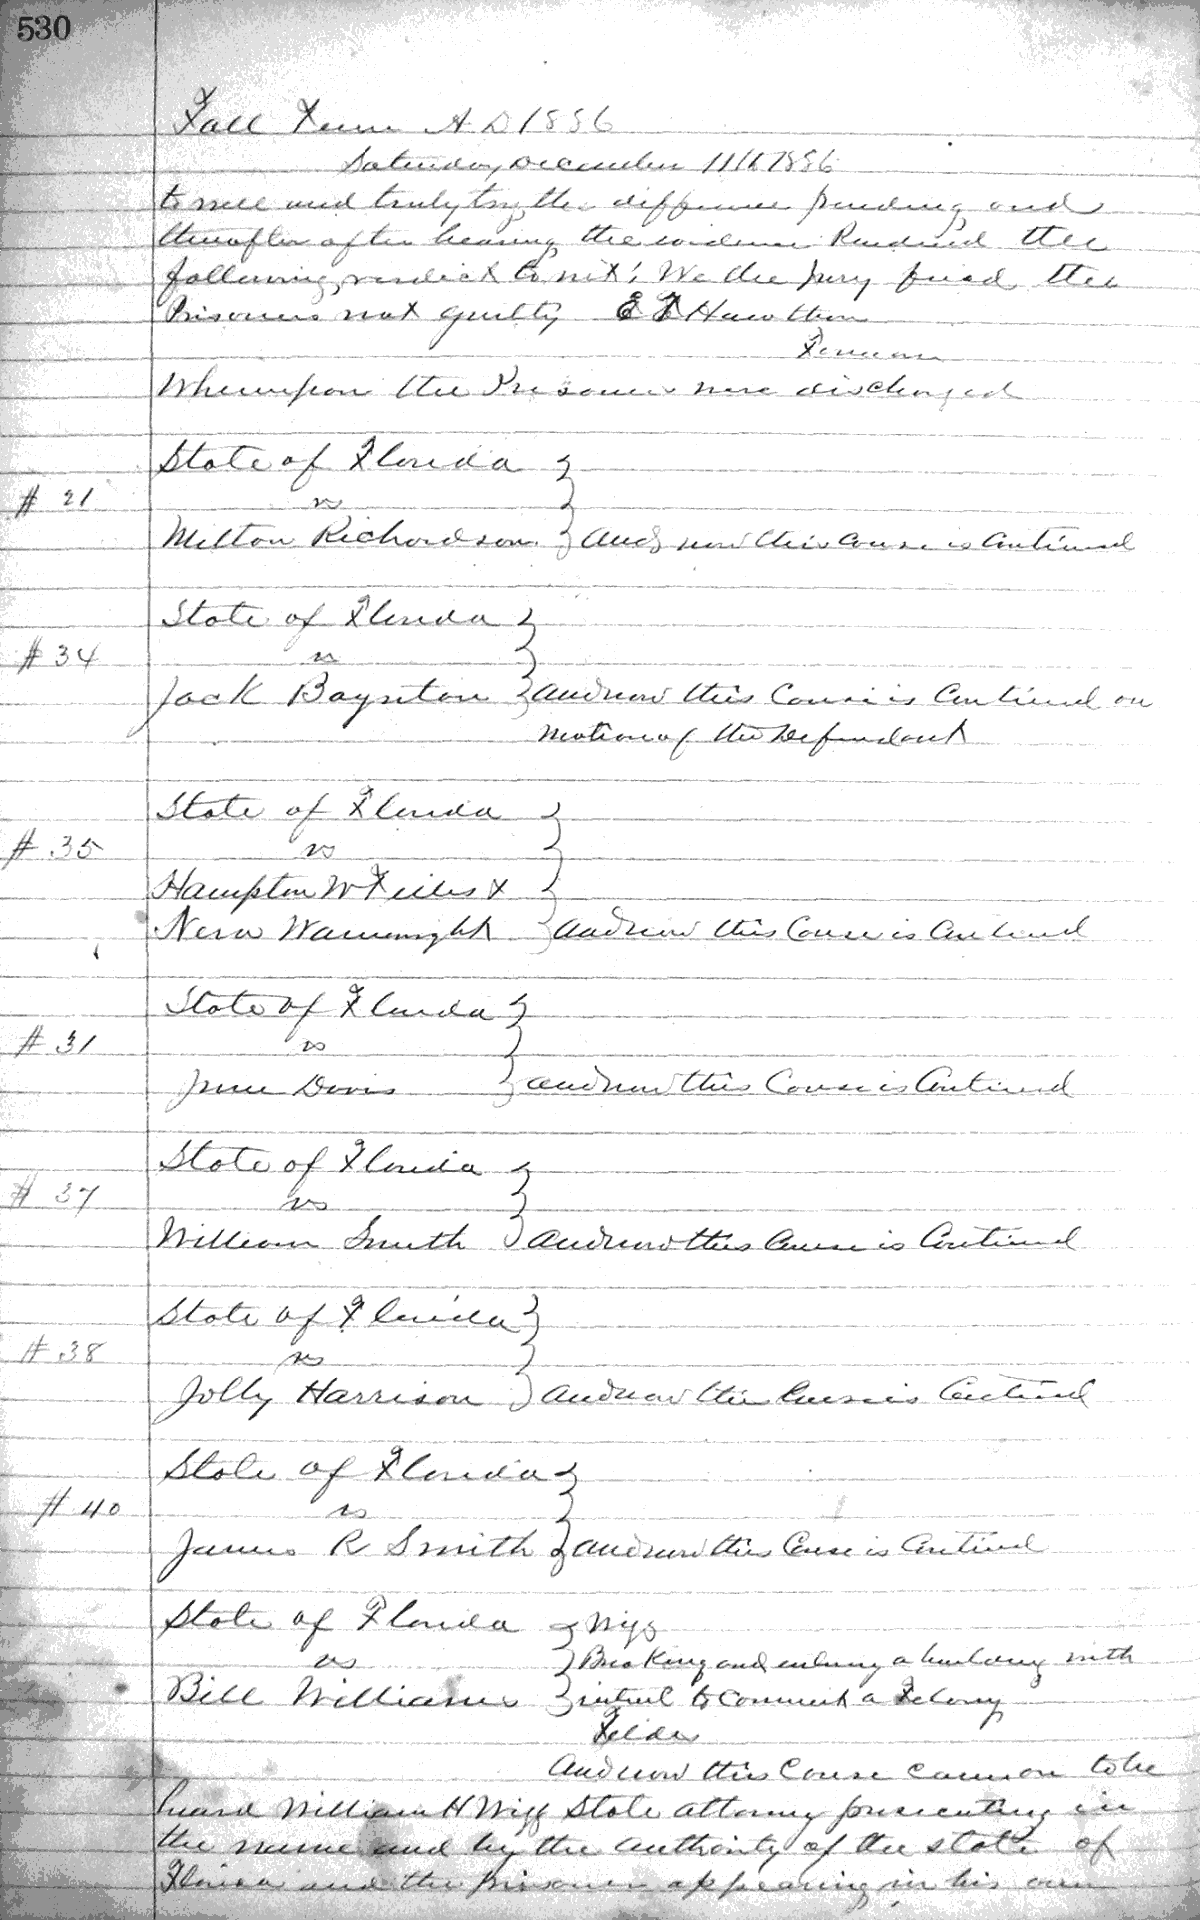 530
Fall Term A D 1886
Saturday December 11th 1886
to well and truly try the difference pending and
thereafter after hearing the evidence Rendered the
following verdict to wit: We the jury find the
Prisoners not guilty E T Hawthorn
Foreman
Whereupon the Prisoners were discharged
State of Florida
# 21 vs
Milton Richardson And now this Cause is Continued
State of Florida
# 34 vs
Jack Boynton And now this Cause is Continued on
motion of the Defendant
State of Florida
# 35 vs
Hampton W &
Nera Wainwright And now this Cause is Continued
State of Florida
# 31 vs
June Davis and now this Cause is Continued
State of Florida
# 37 vs
William Smith And now this Cause is Continued
State of Florida
# 38 vs
Jolly Harrison And now this Cause is Continued
State of Florida
# 40 vs
James R Smith And now this Cause is Continued
State of Florida Wigg
vs Breaking and entering a building with
Bill Williams intent to Commit a Felony
Felder
And now this Cause came on to be
heard William H Wigg State attorney prosecuting in
the name and by the authority of the state of
Florida and the prisoner appearing in his own